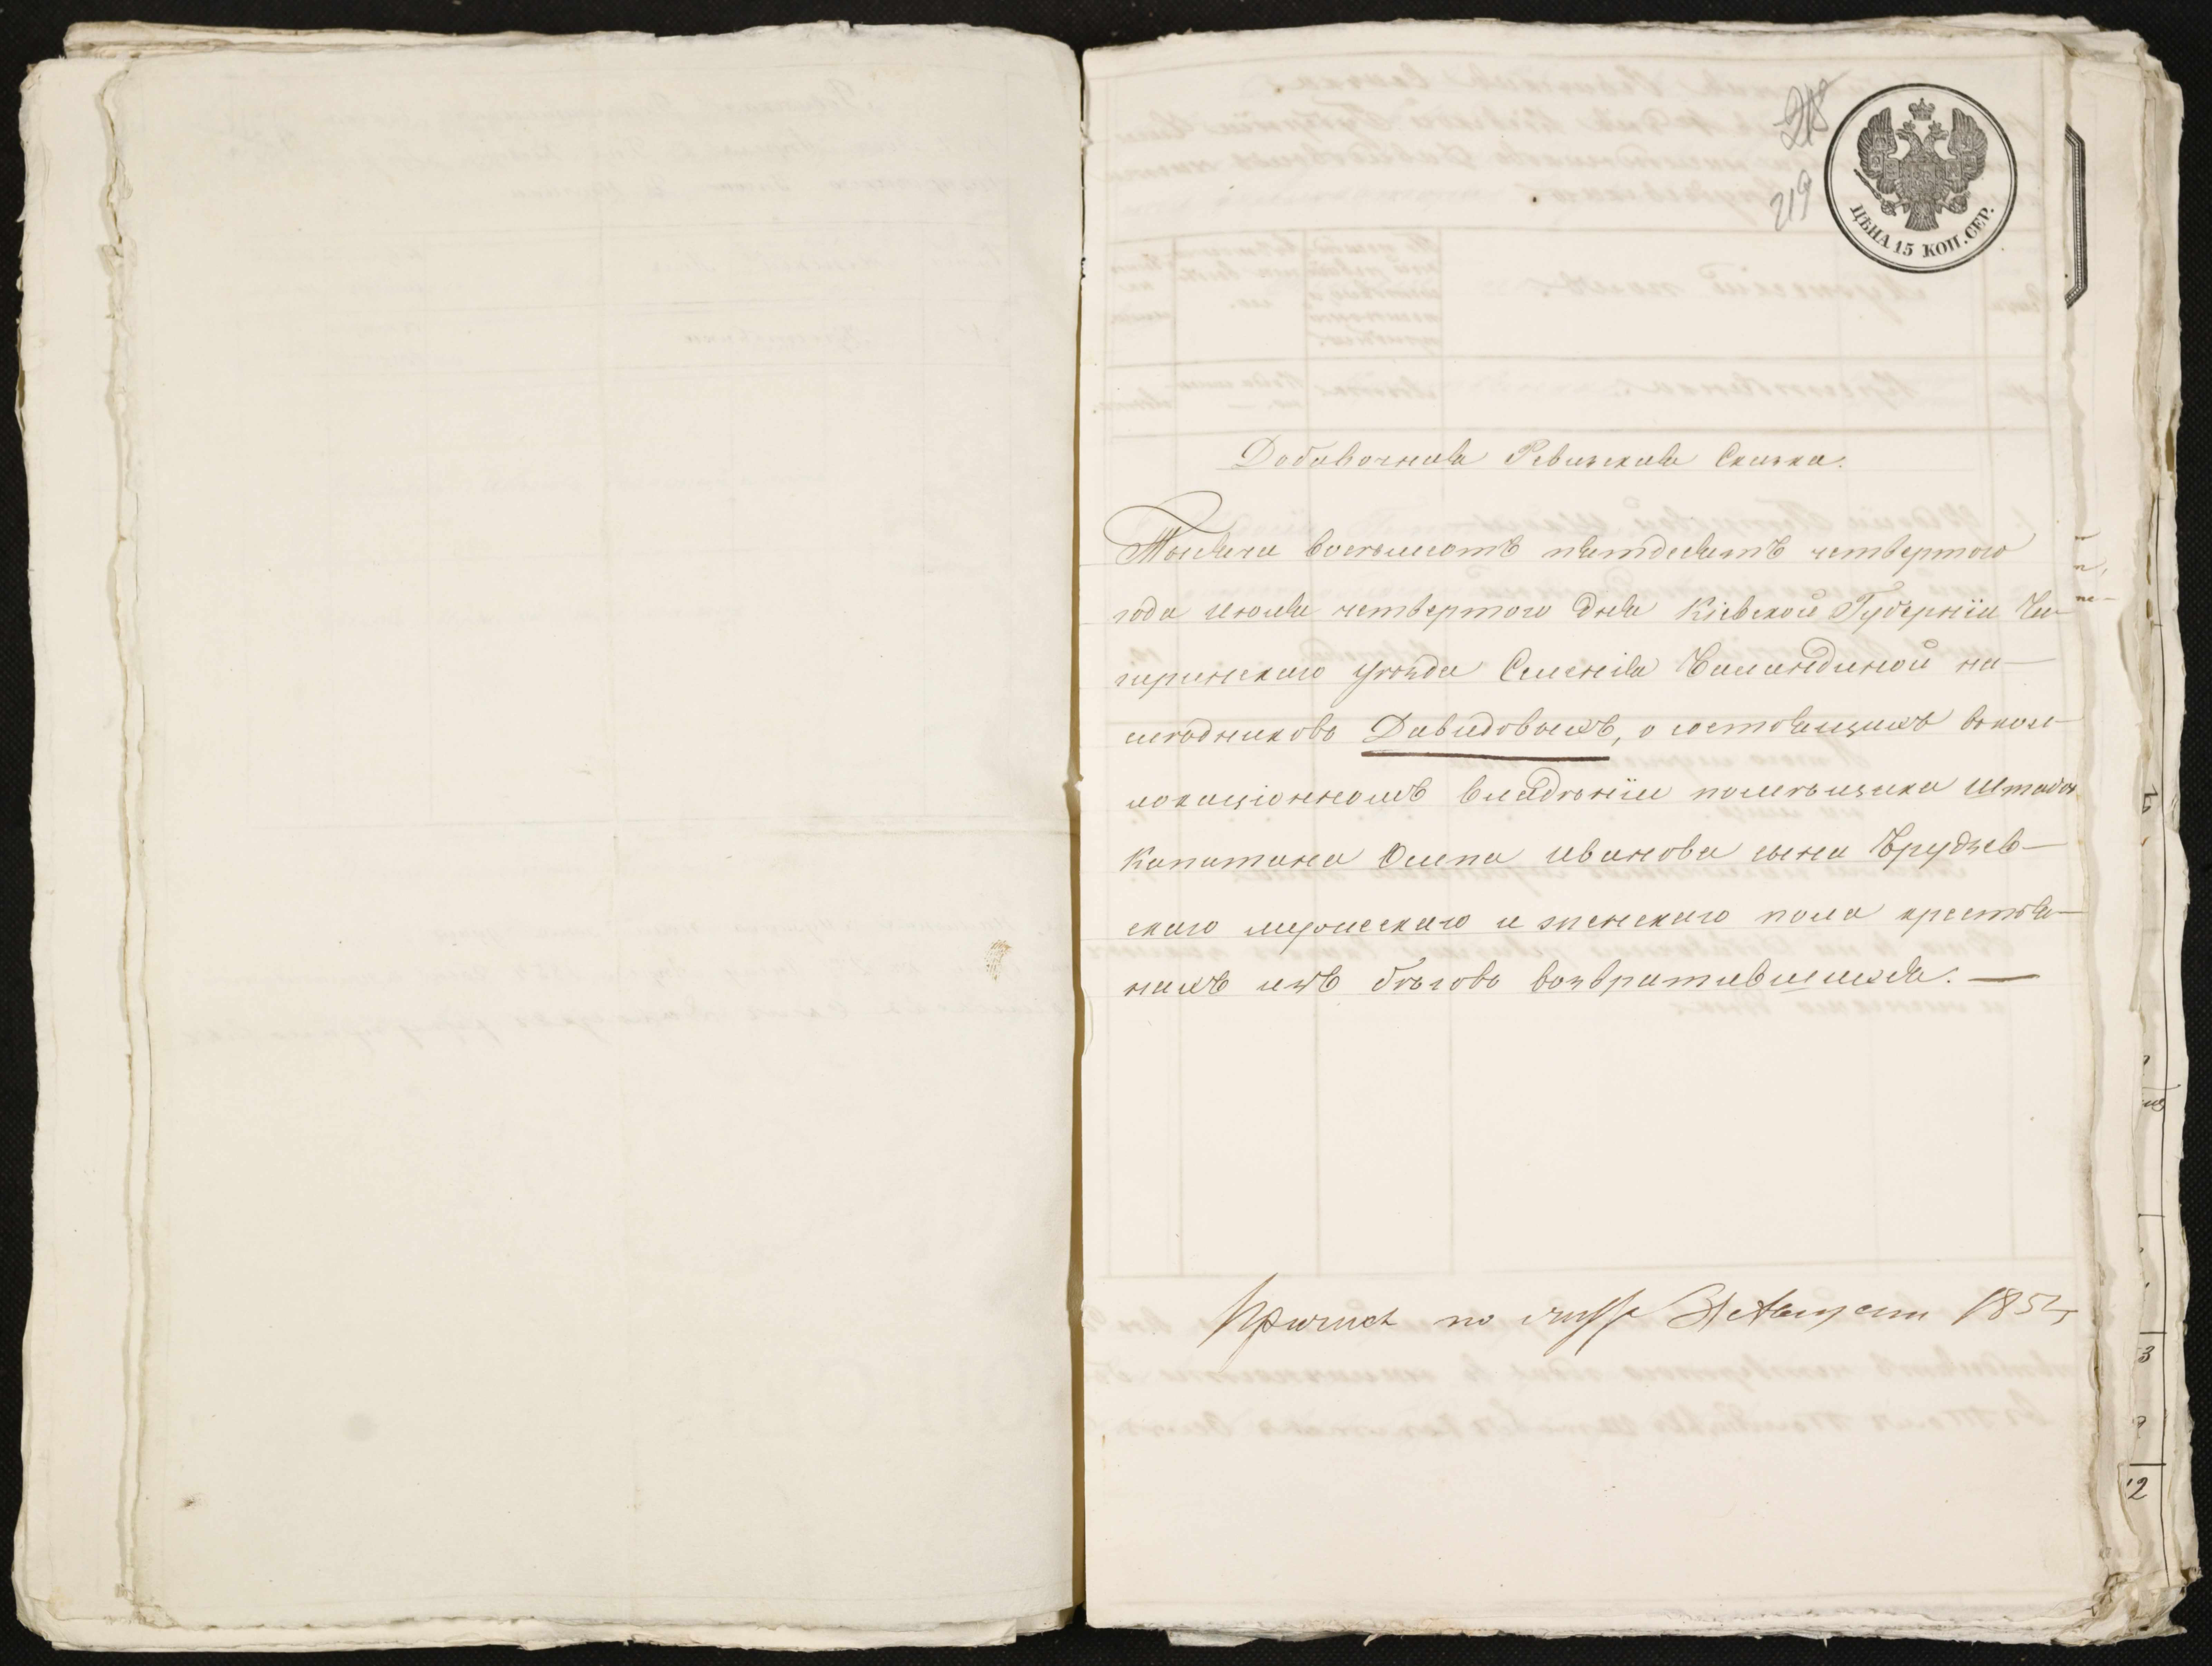 218
219
ЦѢНА 15 КОП. СЕР.
Добавочная Ревизская Сказка.
Тысяча восемьсотъ пятдесятъ четвертого
года июля четвертого дня Кіевской Губерніи Чи-
гиринскаго уѣзда имѣнія на-
слѣдниковъ Давидовыхъ, о состоящихъ въ кол-
локаціонномъ владѣніи помѣщика Штабсъ
Капитана Осипа Иванова сына
скаго мужескаго и женскаго пола крестья-
нахъ изъ бѣговъ возвратившихся. —
по Августа 1854